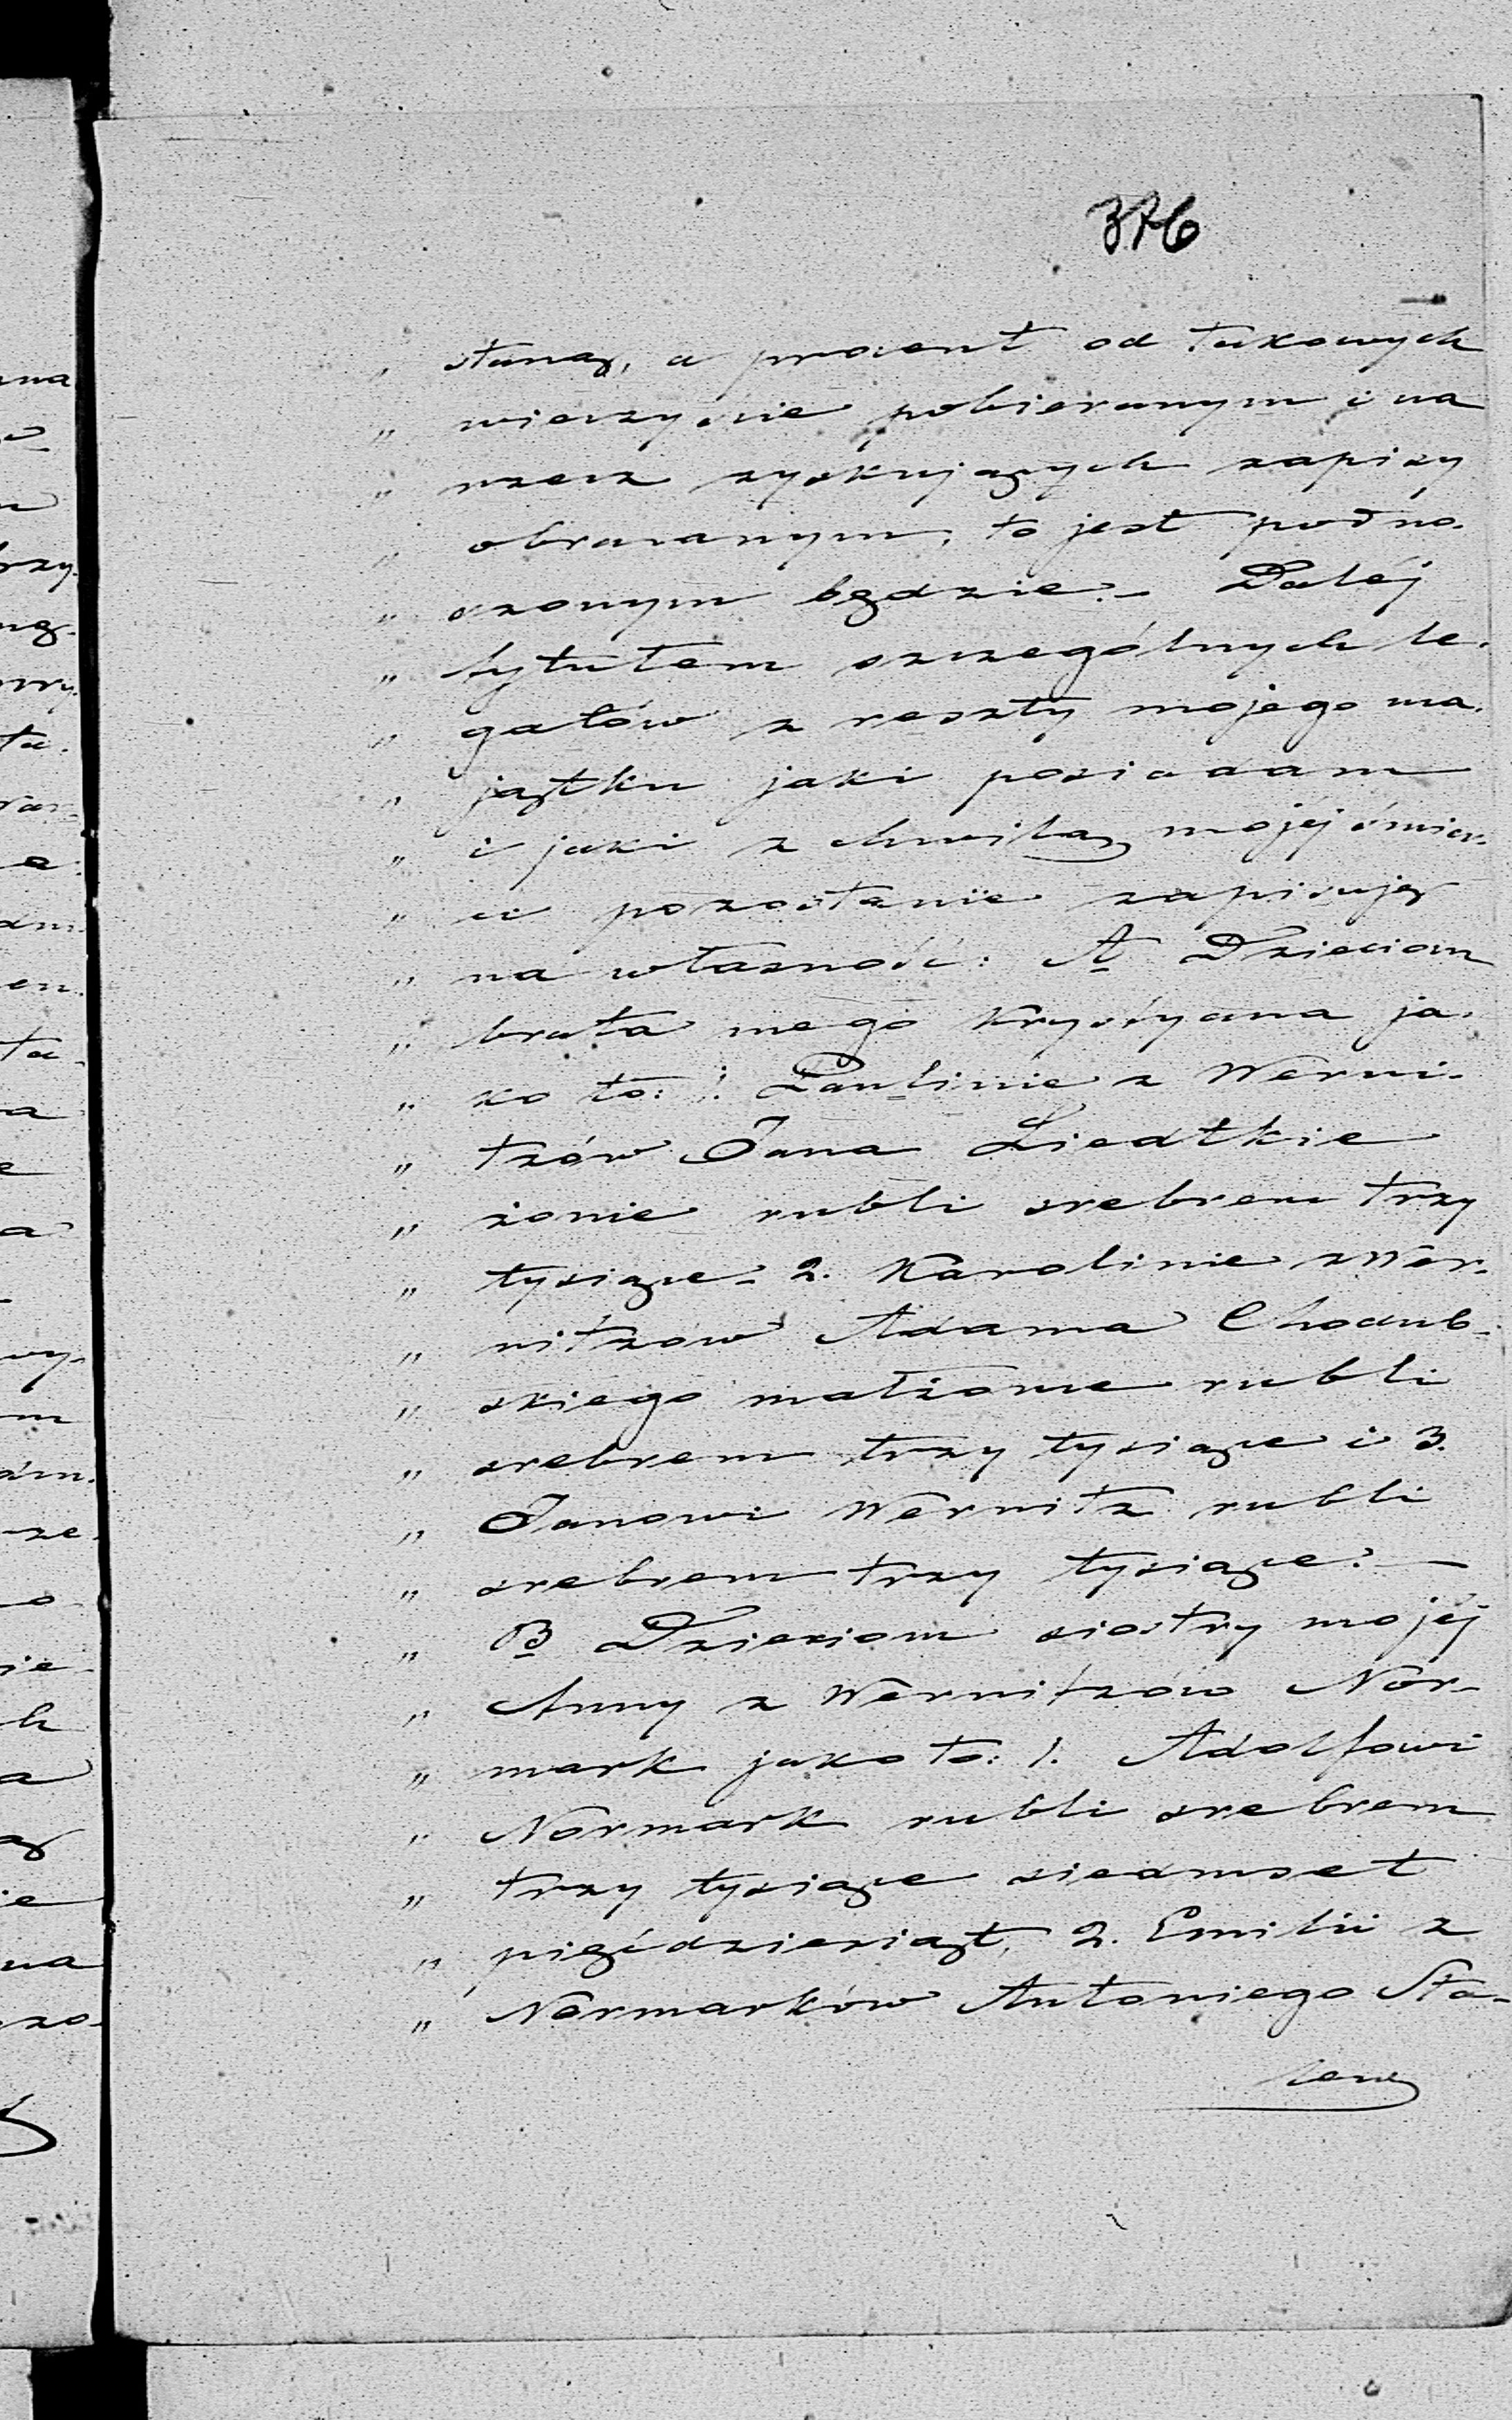 376
„ staną, a procent od takowych
„ wieczyście pobieranym i na
„ rzecz zyskujących zapisy
„ obracanym, to jest podno-
„ szonym będzie. – Daléj
„ tytułem szczególnych le-
„ gatów z reszty mojego ma-
„ jątku jaki posiadam
„ i jaki z chwilą mojéj śmier-
„ ci pozostanie zapisuję
„ na własność: A Dzieciom
„ brata mego Krystyana ja-
„ ko to: 1. Paulinie z Werni-
„ tzów Jana Liedtkie
„ żonie rubli srebrem trzy
„ tysiące – 2. Karolinie z Wer-
„ nitzów Adama Chodub-
„ skiego małżonce rubli
„ srebrem trzy tysiące i 3.
„ Janowi Wernitz rubli
„ srebrem trzy tysiące. –
„ B Dzieciom siostry mojéj
„ Anny z Wernitzów Nor-
„ mark jako to: 1. Adolfowi
„ Normark rubli srebrem
„ trzy tysiące siedmset
„ pięćdziesiąt, 2. Emilii z
„ Normarków Antoniego Sta-